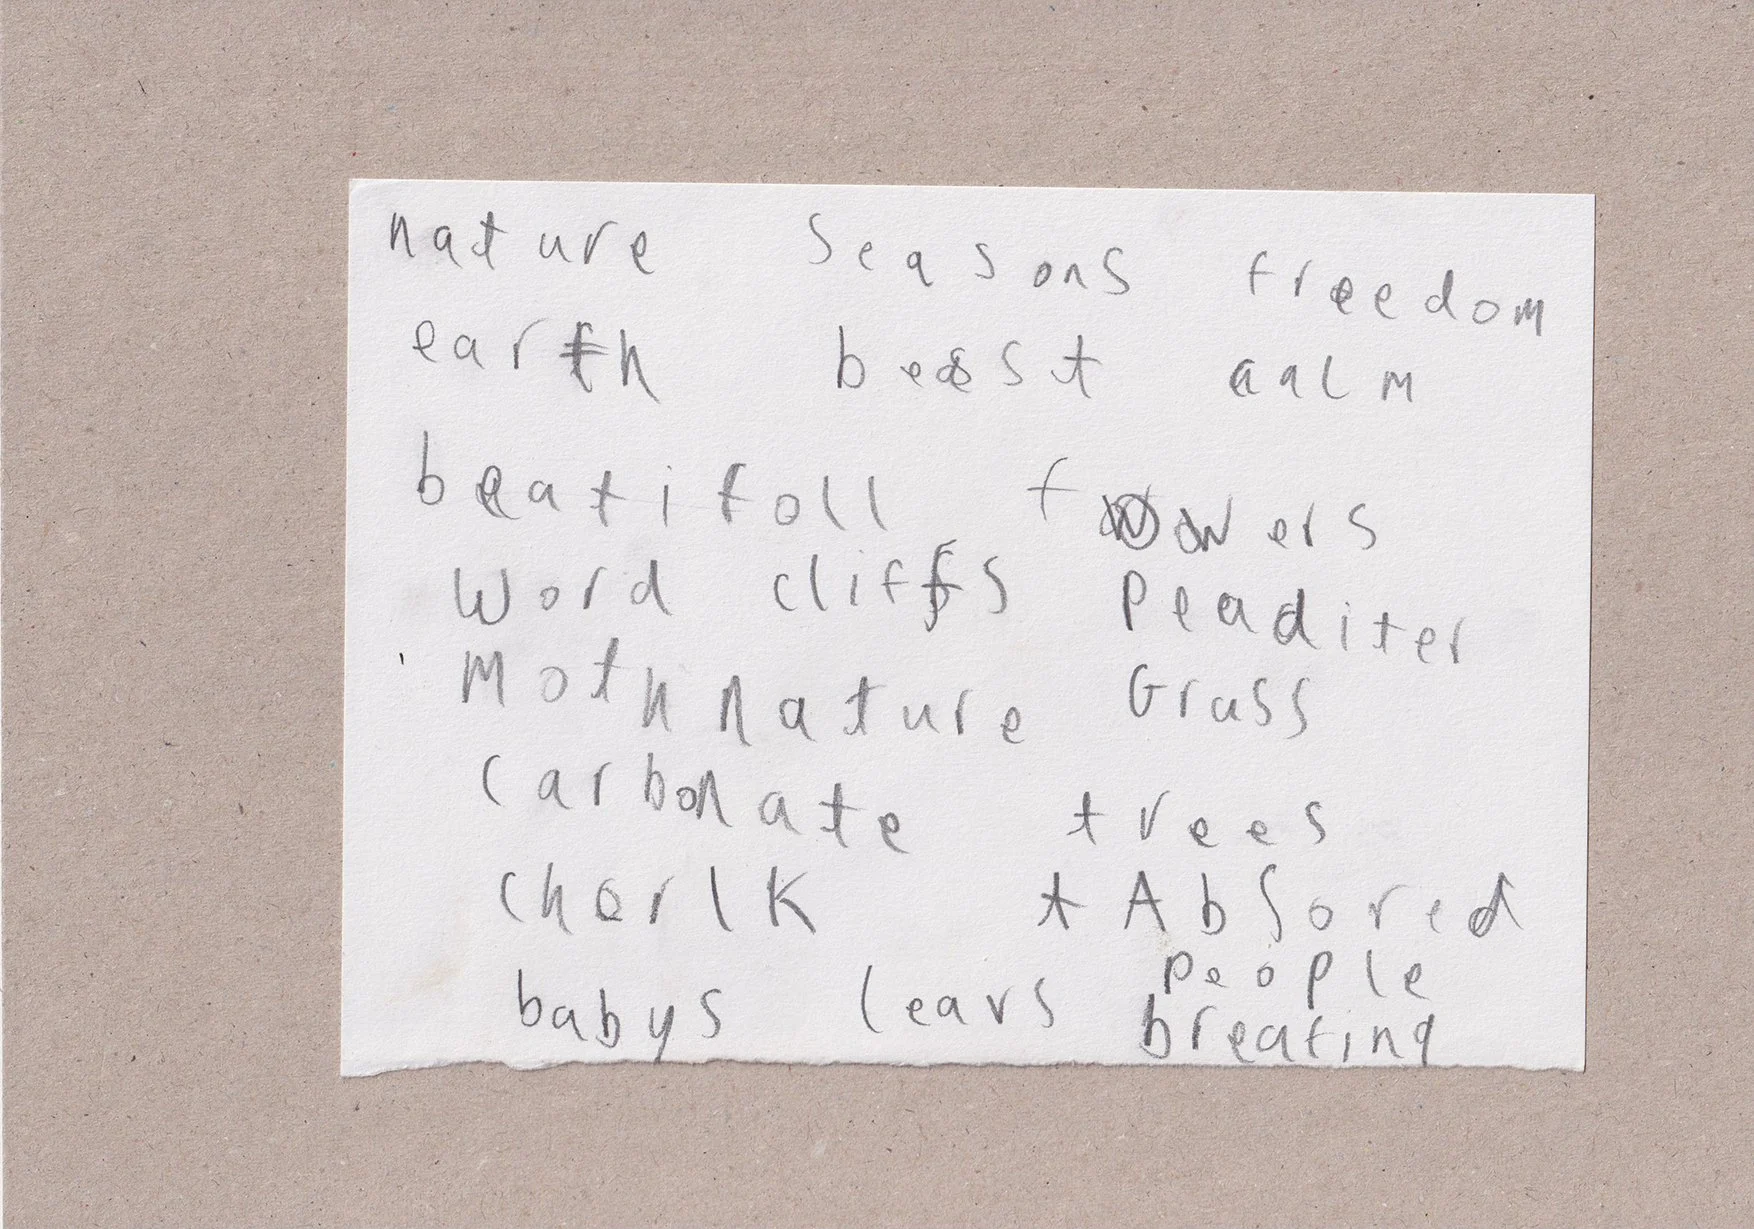 nature seasons freedom
earth beast calm
beatifoll fowers
word cliffs peaditer
moth nature Grass
carbonate trees
chorlk Absored
people
babys leavs breating